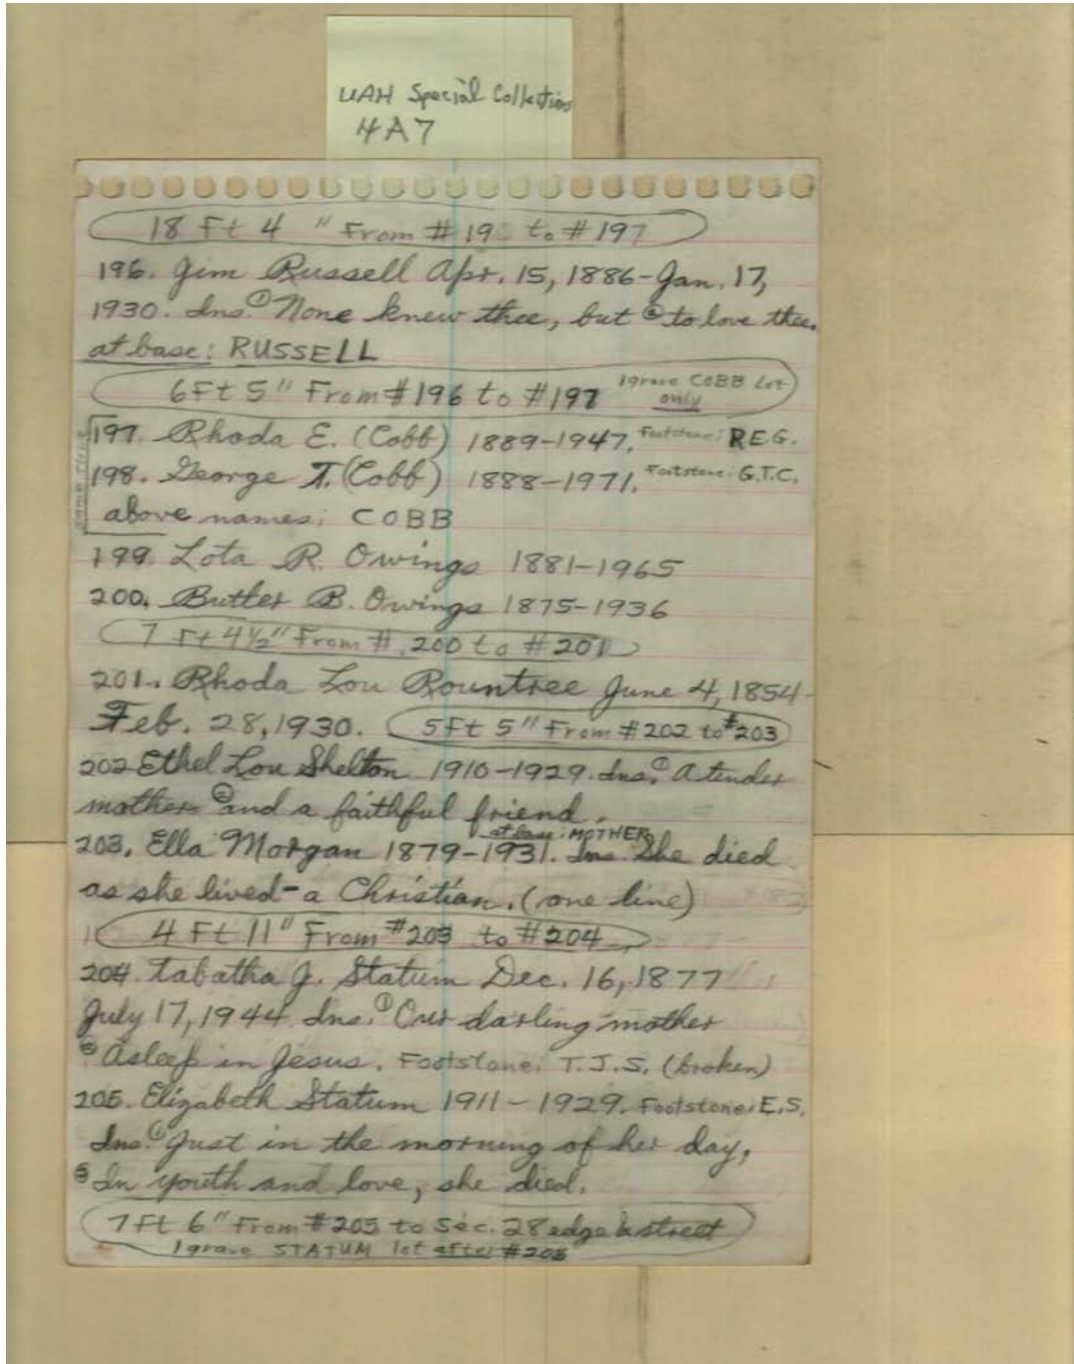 UAH Special Collections
4A7
18 Ft 4 " From #19 to #197
196. Jim Russell Apr. 15, 1886-Jan. 17,
1930. Ins. ① None knew thee, but ② to love thee.
at base: RUSSELL
6Ft 5" From #196 to #197 1grave COBB Lot
only
197. Rhoda E. (Cobb) 1889-1947. Footstone: R.E.G.
198. George T. (Cobb) 1888-1971. Footstone: G.T.C.
same
above names: COBB
199. Lota R. Owings 1881-1965
200. Butler B. Owings 1875-1936
7 Ft 4½" From #.200 to #201
201. Rhoda Lou Rountree June 4, 1854-
Feb. 28, 1930. 5Ft 5" From #202 to #203
202 Ethel Lou Shelton 1910-1929. Ins. ① A tender
mother ② and a faithful friend.
at base: MOTHER
203. Ella Morgan 1879-1931. Ins. She died
as she lived - a Christian. (one line)
4 Ft 11" From #203 to #204
204. Tabatha J. Statum Dec. 16, 1877
July 17, 1944. Ins. ① Our darling mother
② Asleep in Jesus. Footstone: T.J.S. (broken)
205. Elizabeth Statum 1911-1929. Footstone: E.S.
Ins. ① Just in the morning of her day,
② In youth and love, she died.
7 Ft 6" From #205 to Sec. 28 edge & street
1grave STATUM lot after #205